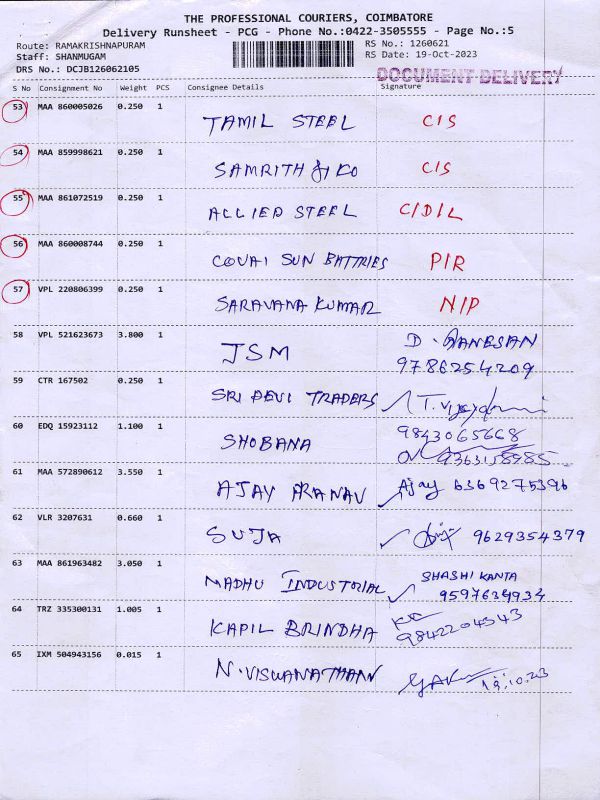 THE PROFESSIONAL COURIERS, COIMBATORE
Delivery Runsheet - PCG - Phone No.:0422-3505555 - Page No.:5
Route: RAMAKRISHNAPURAM
Staff: SHANMUGAM
DRS No.: DCJB126062105
RS No.: 1260621
RS Date: 19-Oct-2023
DOCUMENT DELIVERY
S No Consignment No Weight PCS Consignee Details Signature
53 MAA 860005026 0.250 1 TAMIL STEEL C/S
54 MAA 859998621 0.250 1 SAMRITH & KO C/S
55 MAA 861072519 0.250 1 ALLIED STEEL C/D/L
56 MAA 860008744 0.250 1 COVAI SUN BATTRIES P/R
57 VPL 220806399 0.250 1 SARAVANA KUMAR N/P
58 VPL 521623673 3.800 1 JSM D. GANESAN
9786254209
59 CTR 167502 0.250 1 SRI DEVI TRADERS
60 EDQ 15923112 1.100 1 SHOBANA 9843065668
61 MAA 572890612 3.550 1 AJAY PRANAV Ajay 6369275396
62 VLR 3207631 0.660 1 SUJA 9629354379
63 MAA 861963482 3.050 1 MADHU INDUSTORIAL SHASHI KANTA
9597634934
64 TRZ 335300131 1.005 1 KAPIL BRINDHA
9842204543
65 IXM 504943156 0.015 1 N. VISWANATHANN 19.10.23